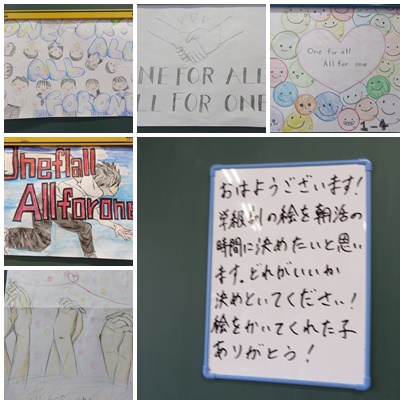 ONE FOR ALL
ALL
FOR ONE
ONE FOR ALL
ALL FOR ONE
One for all
All for one
1-4
Oneflall
Allforone
おはようございます!
学級別の絵を朝活の
時間に決めたいと思い
ます。どれがいいか
決めといてください!
絵をかいてくれた子
ありがとう!